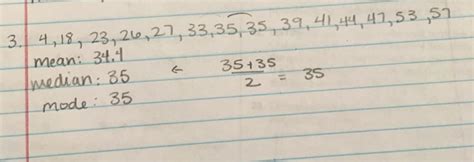 3. 4,18,23,26,27,33,35,35,39,41,44,47,53,57
mean: 34.4
median: 35 ← 35+35/2 = 35
mode: 35